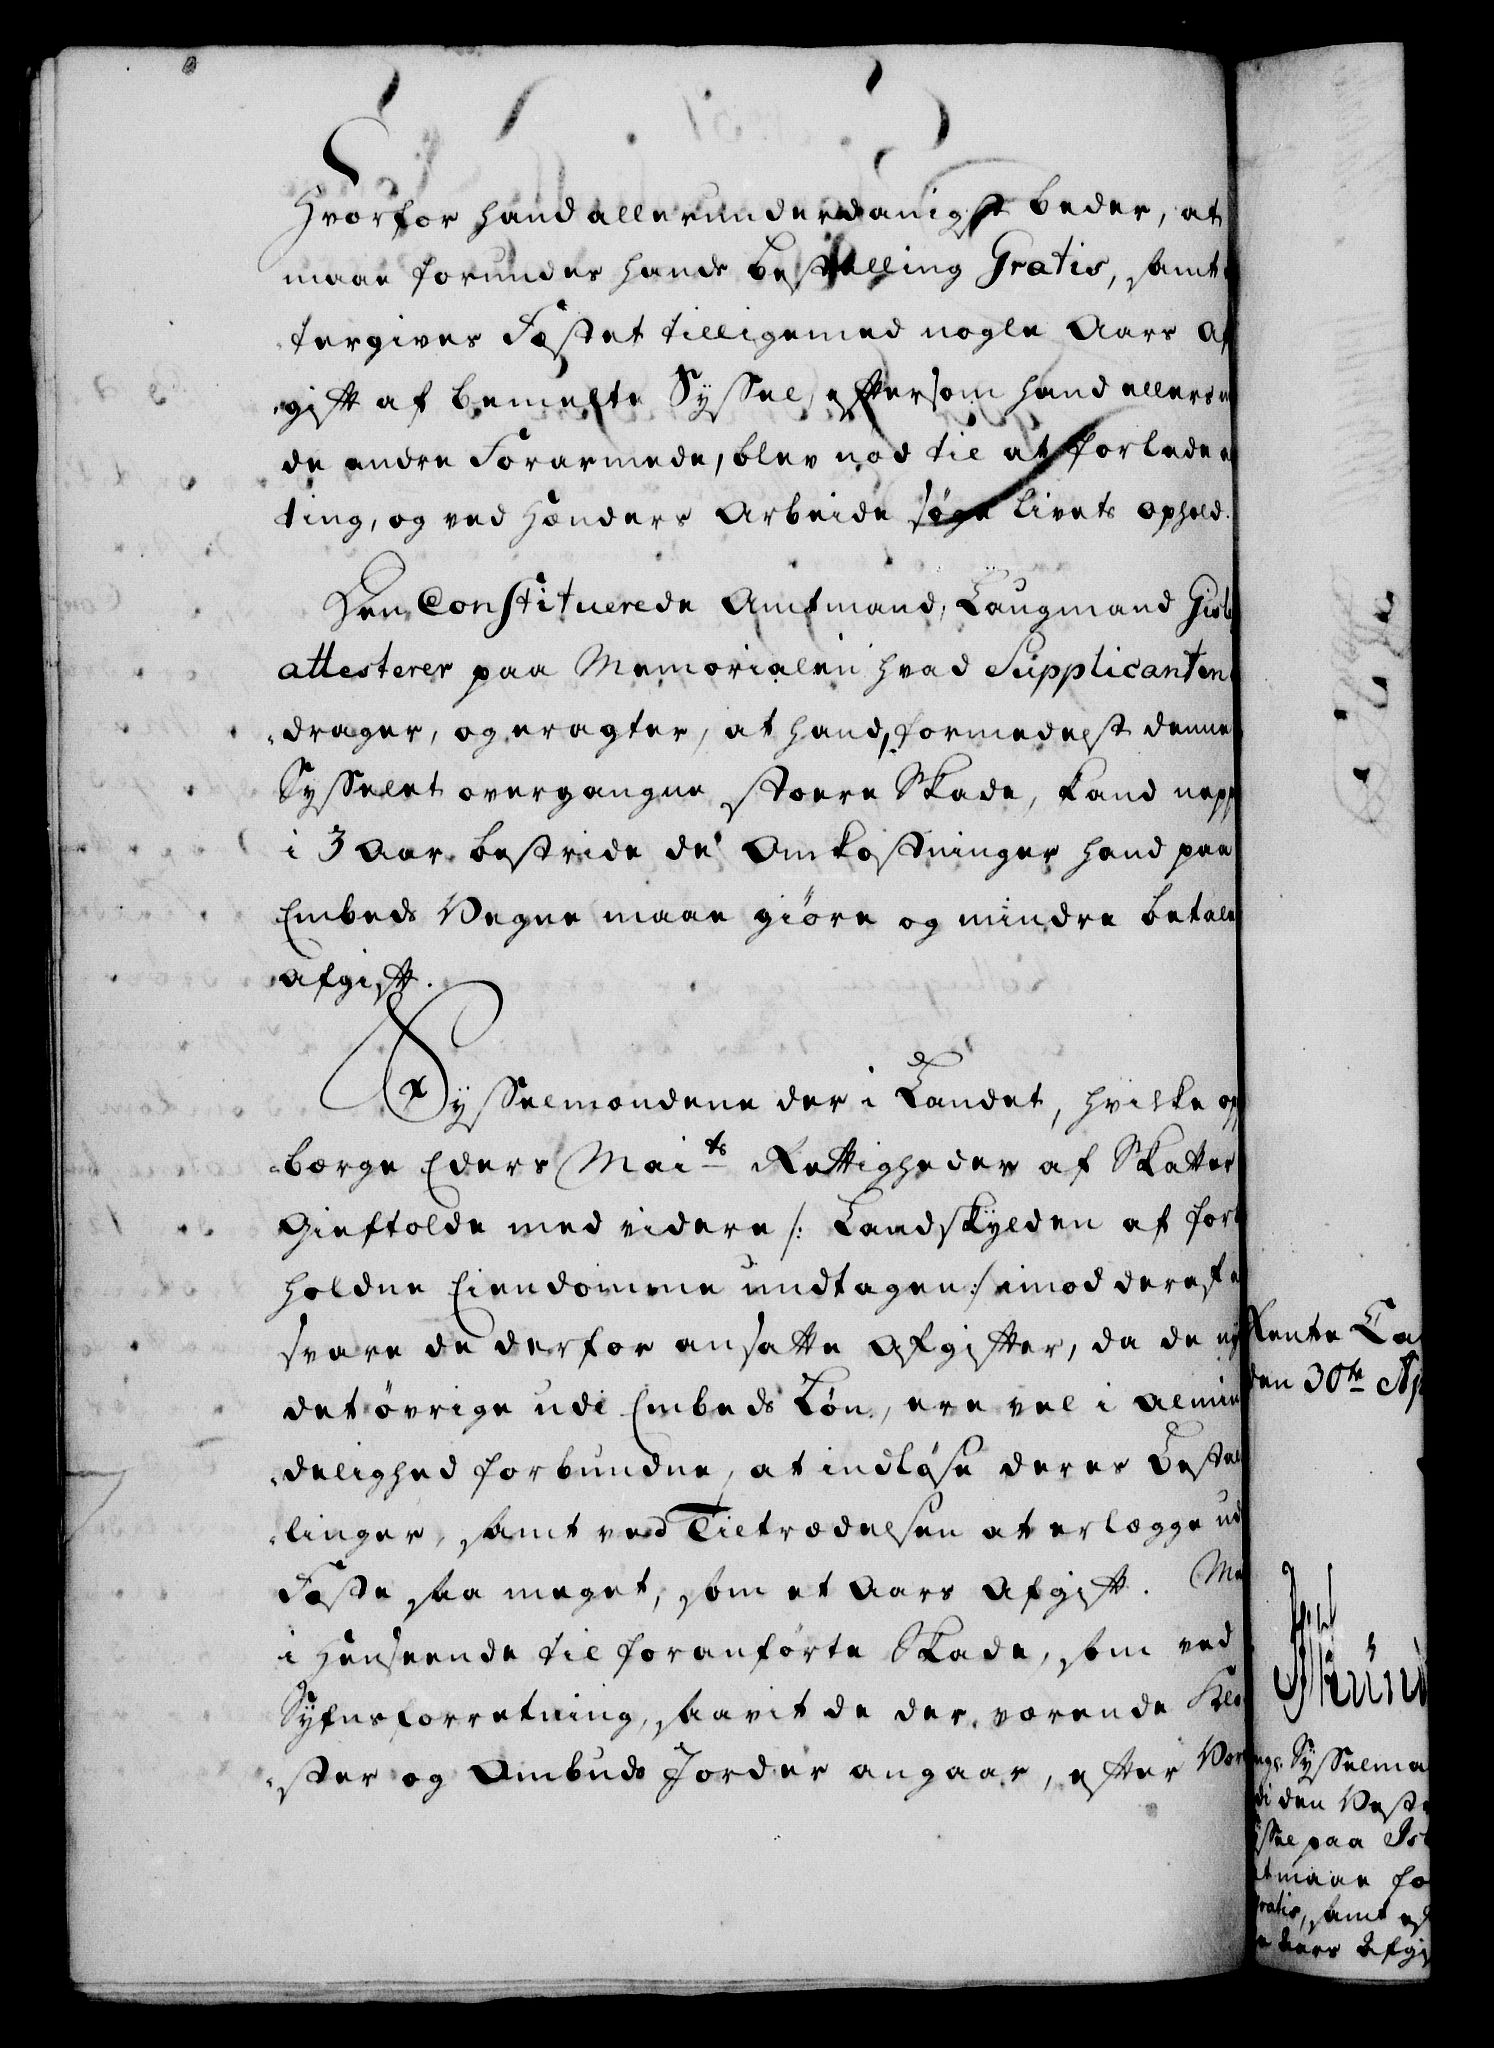 Hvorfor hand allerunderdanigst beder, at
maae forundes hands bestalling Gratis, samt
tergives Fæstet tilligemed nogle Aars Af
gift af bemelte Syssel, eftersom hand ellers
de andre Forarmede, blev nød til at forlade
ting, og ved Hænders Arbeide søge Livets ophold.
Den Constituerede Amtmand, Laugmand Gisl
attesterer paa Memorialen hvad Supplicanten
drager, og eragter, at hand, formedelst denne
Sysselet overgangne stoere Skade, kand nepp
i 3 Aar bestride de Omkostninger hand paa
Embeds Vegne maae giöre og mindre betale
Afgift.
Sysselmændene der i Landet, hvilke op
bærge Eders Mai.ts Rettigheder af Skatter
Gieftolde med videre /: Landskylden af forbe
holdne Eiendomme undtagen :/ imod deraf
svare de derfor ansatte Afgifter, da de
det övrige udi Embeds Løn, ere vel i Almin
delighed forbundne, at indløse deres Bestal
linger, samt ved Tiltrædelsen at erlægge ud
Fæste saa meget, som et Aars Afgift. Me
i Henseende til foranførte Skade, som ved
Synsforretning, saavit de der værende Klo
ster og Ombuds Jorder angaar, efter Vor
Rente Ca
den 30te Ap
Sysselma
di den Vest
yssel paa Isl
at maae fo
Gratis, samt
Aars Afgi